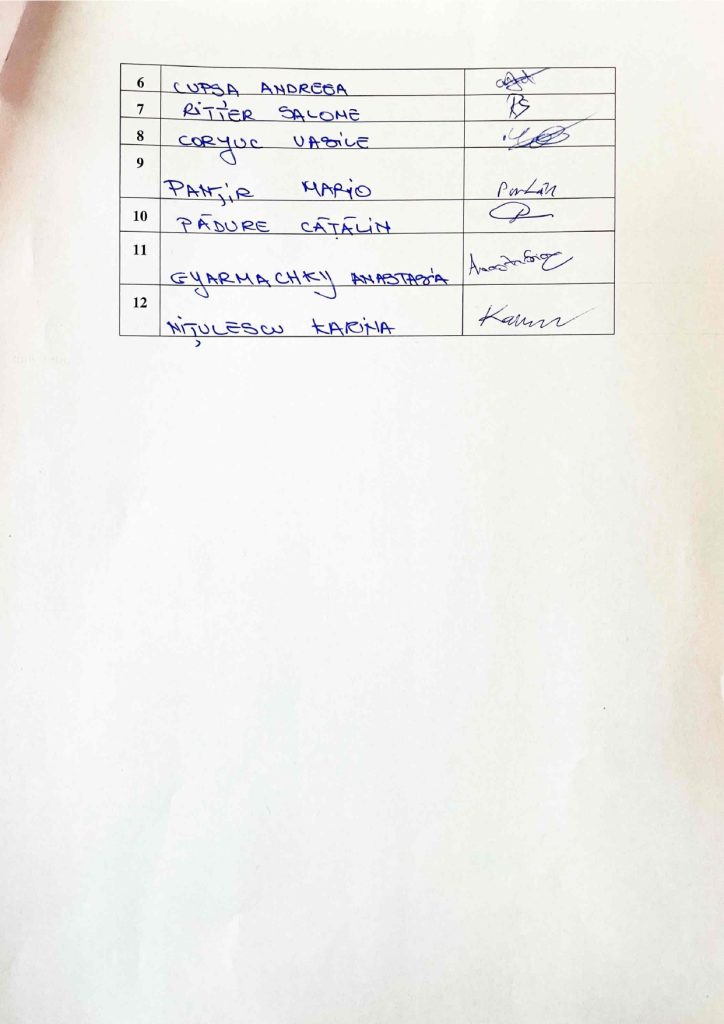 6 CUPȘA ANDREEA
7 RITTER SALOME
8 CORYUC VASILE
9 PANȚIR MARIO
10 PĂDURE CĂTĂLIN
11 GYARMACHKY ANASTASIA Anastasia
12 NIȚULESCU KARINA Karina